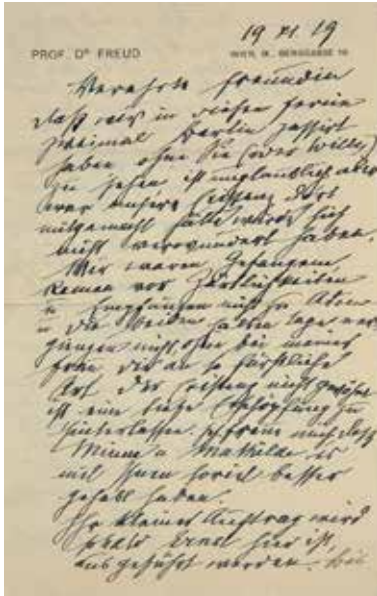 19 XI 19
PROF. Dr FREUD WIEN, IX., BERGGASSE 19
Verehrte Freundin
Daß wir in diesen Ferien
zweimal Berlin passirt
haben ohne Sie (oder Willy)
zu sehen, ist unglaublich aber
wer unsere Existenz dort
mitgemacht hätte würde sich
nicht verwundert haben.
Wir waren Gefangene,
kamen vor Zärtlichkeiten
u Empfängen nicht zu Atem
u die beiden Tage ver
gingen nicht ohne bei meiner
Frau, die an so fürstliche
Art der Existenz nicht gewöhnt
ist eine Erschöpfung zu
hinterlassen. freue mich daß
Minna u Mathilde es
mit Ihnen soviel besser
gehabt haben.
Ihr kleiner Auftrag wird
sobald Ernst hier ist,
ausgeführt werden.